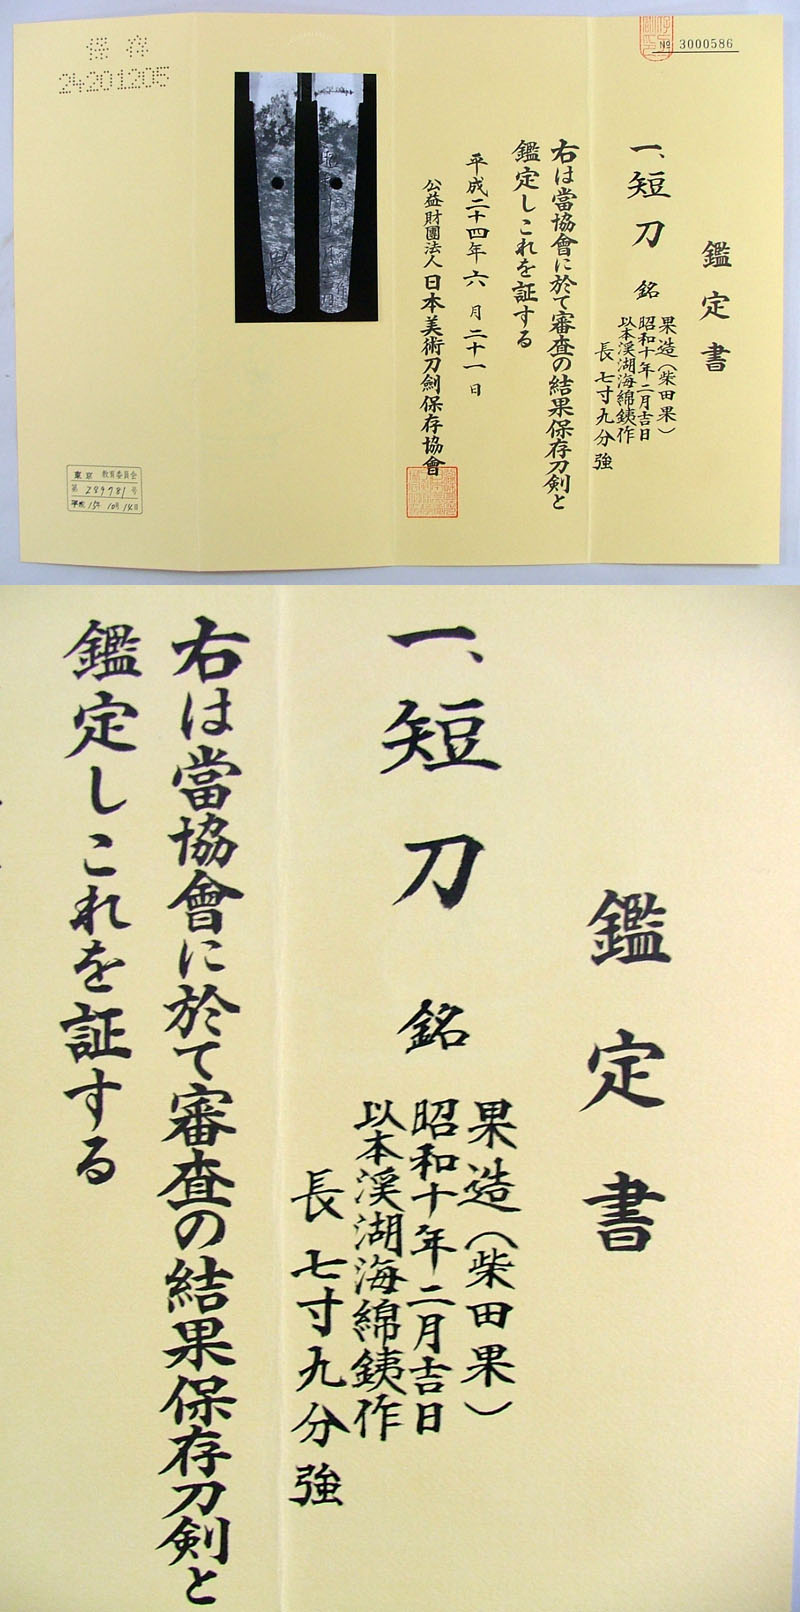 № 3000586
鑑定書
一、短刀 銘 果造(柴田果)
昭和十年二月吉日
以本渓湖海綿銕作
長 七寸九分強
右は當協會に於て審査の結果保存刀剣と
鑑定しこれを証する
平成二十四年六月二十一日
公益財團法人 日本美術刀劍保存協會
保存
24201206
東京 教育委員会
第 289781 号
平成 15年 10月 14日
鑑定書
一、短刀 銘 果造(柴田果)
昭和十年二月吉日
以本渓湖海綿銕作
長 七寸九分強
右は當協會に於て審査の結果保存刀剣と
鑑定しこれを証する